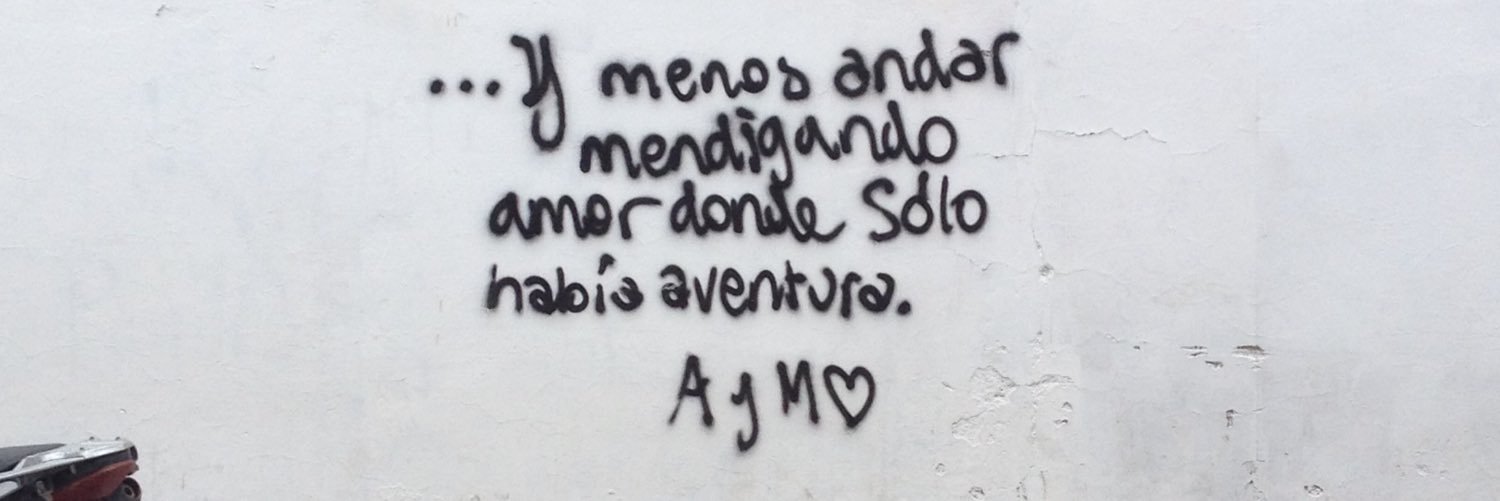 ...Y menos andar
mendigando
amor donde sólo
había aventura.
A y M♡